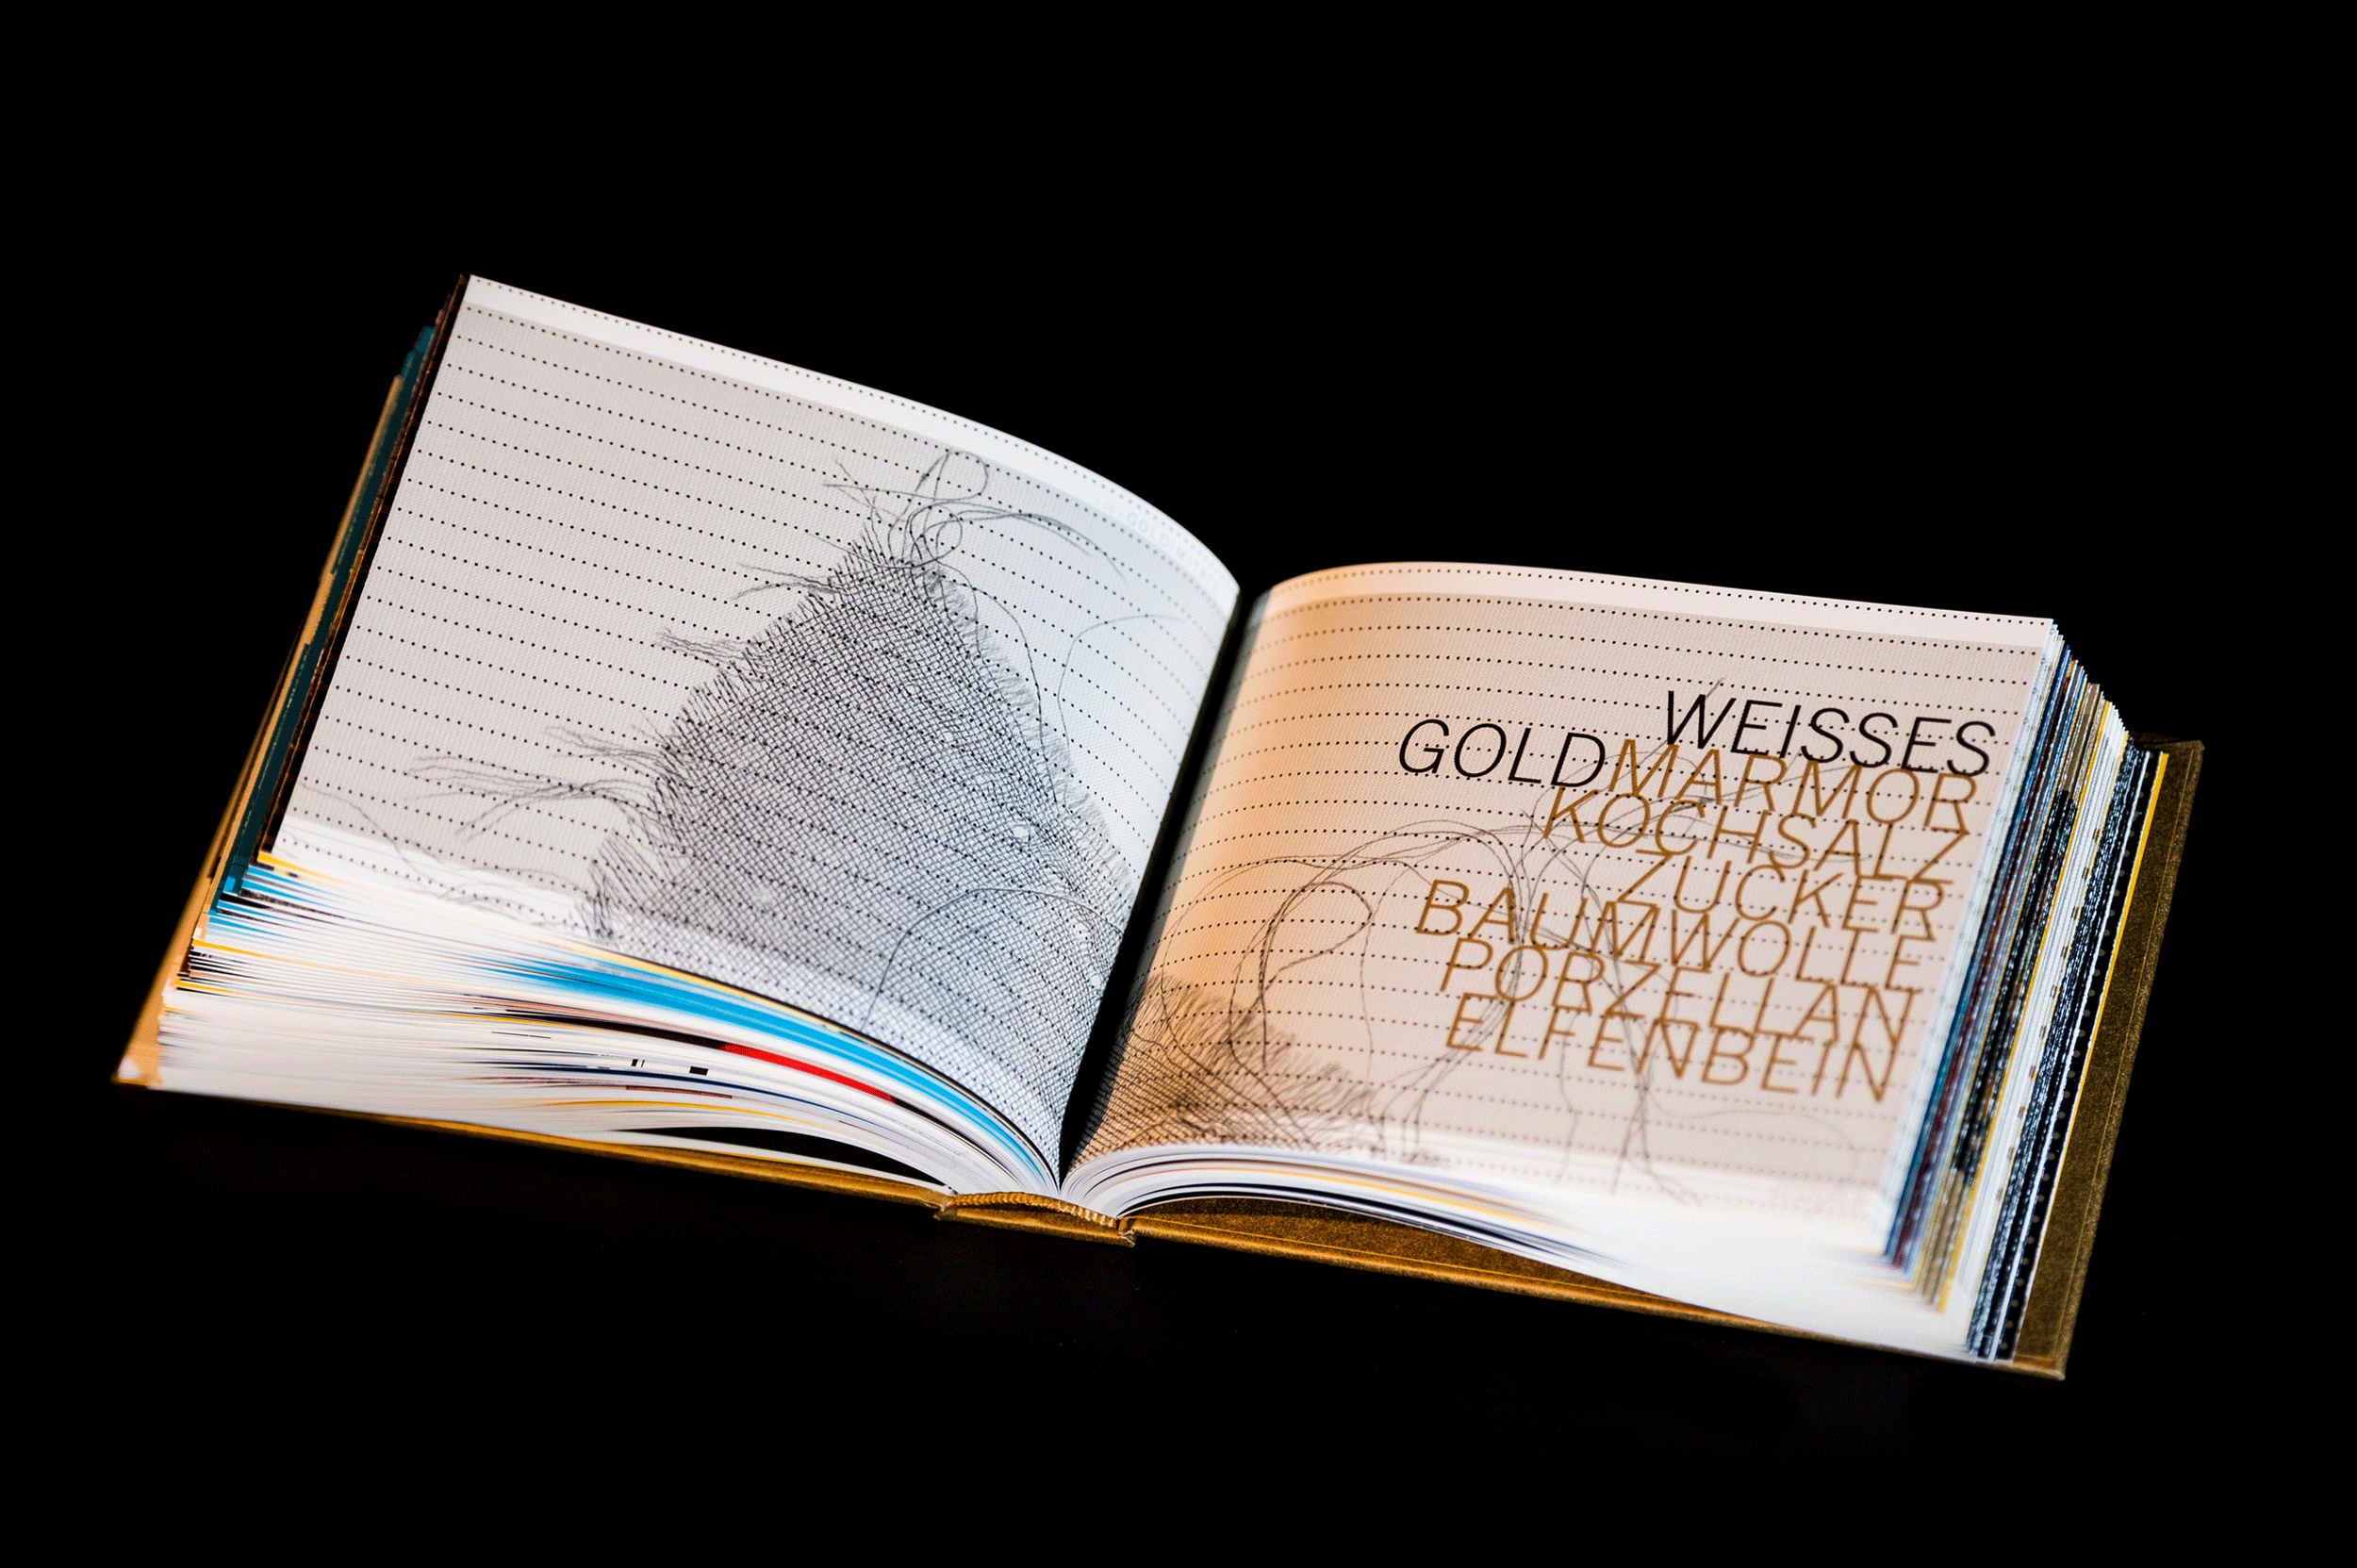 WEISSES
GOLDMARMOR
KOCHSALZ
ZUCKER
BAUMWOLLE
PORZELLAN
ELFENBEIN